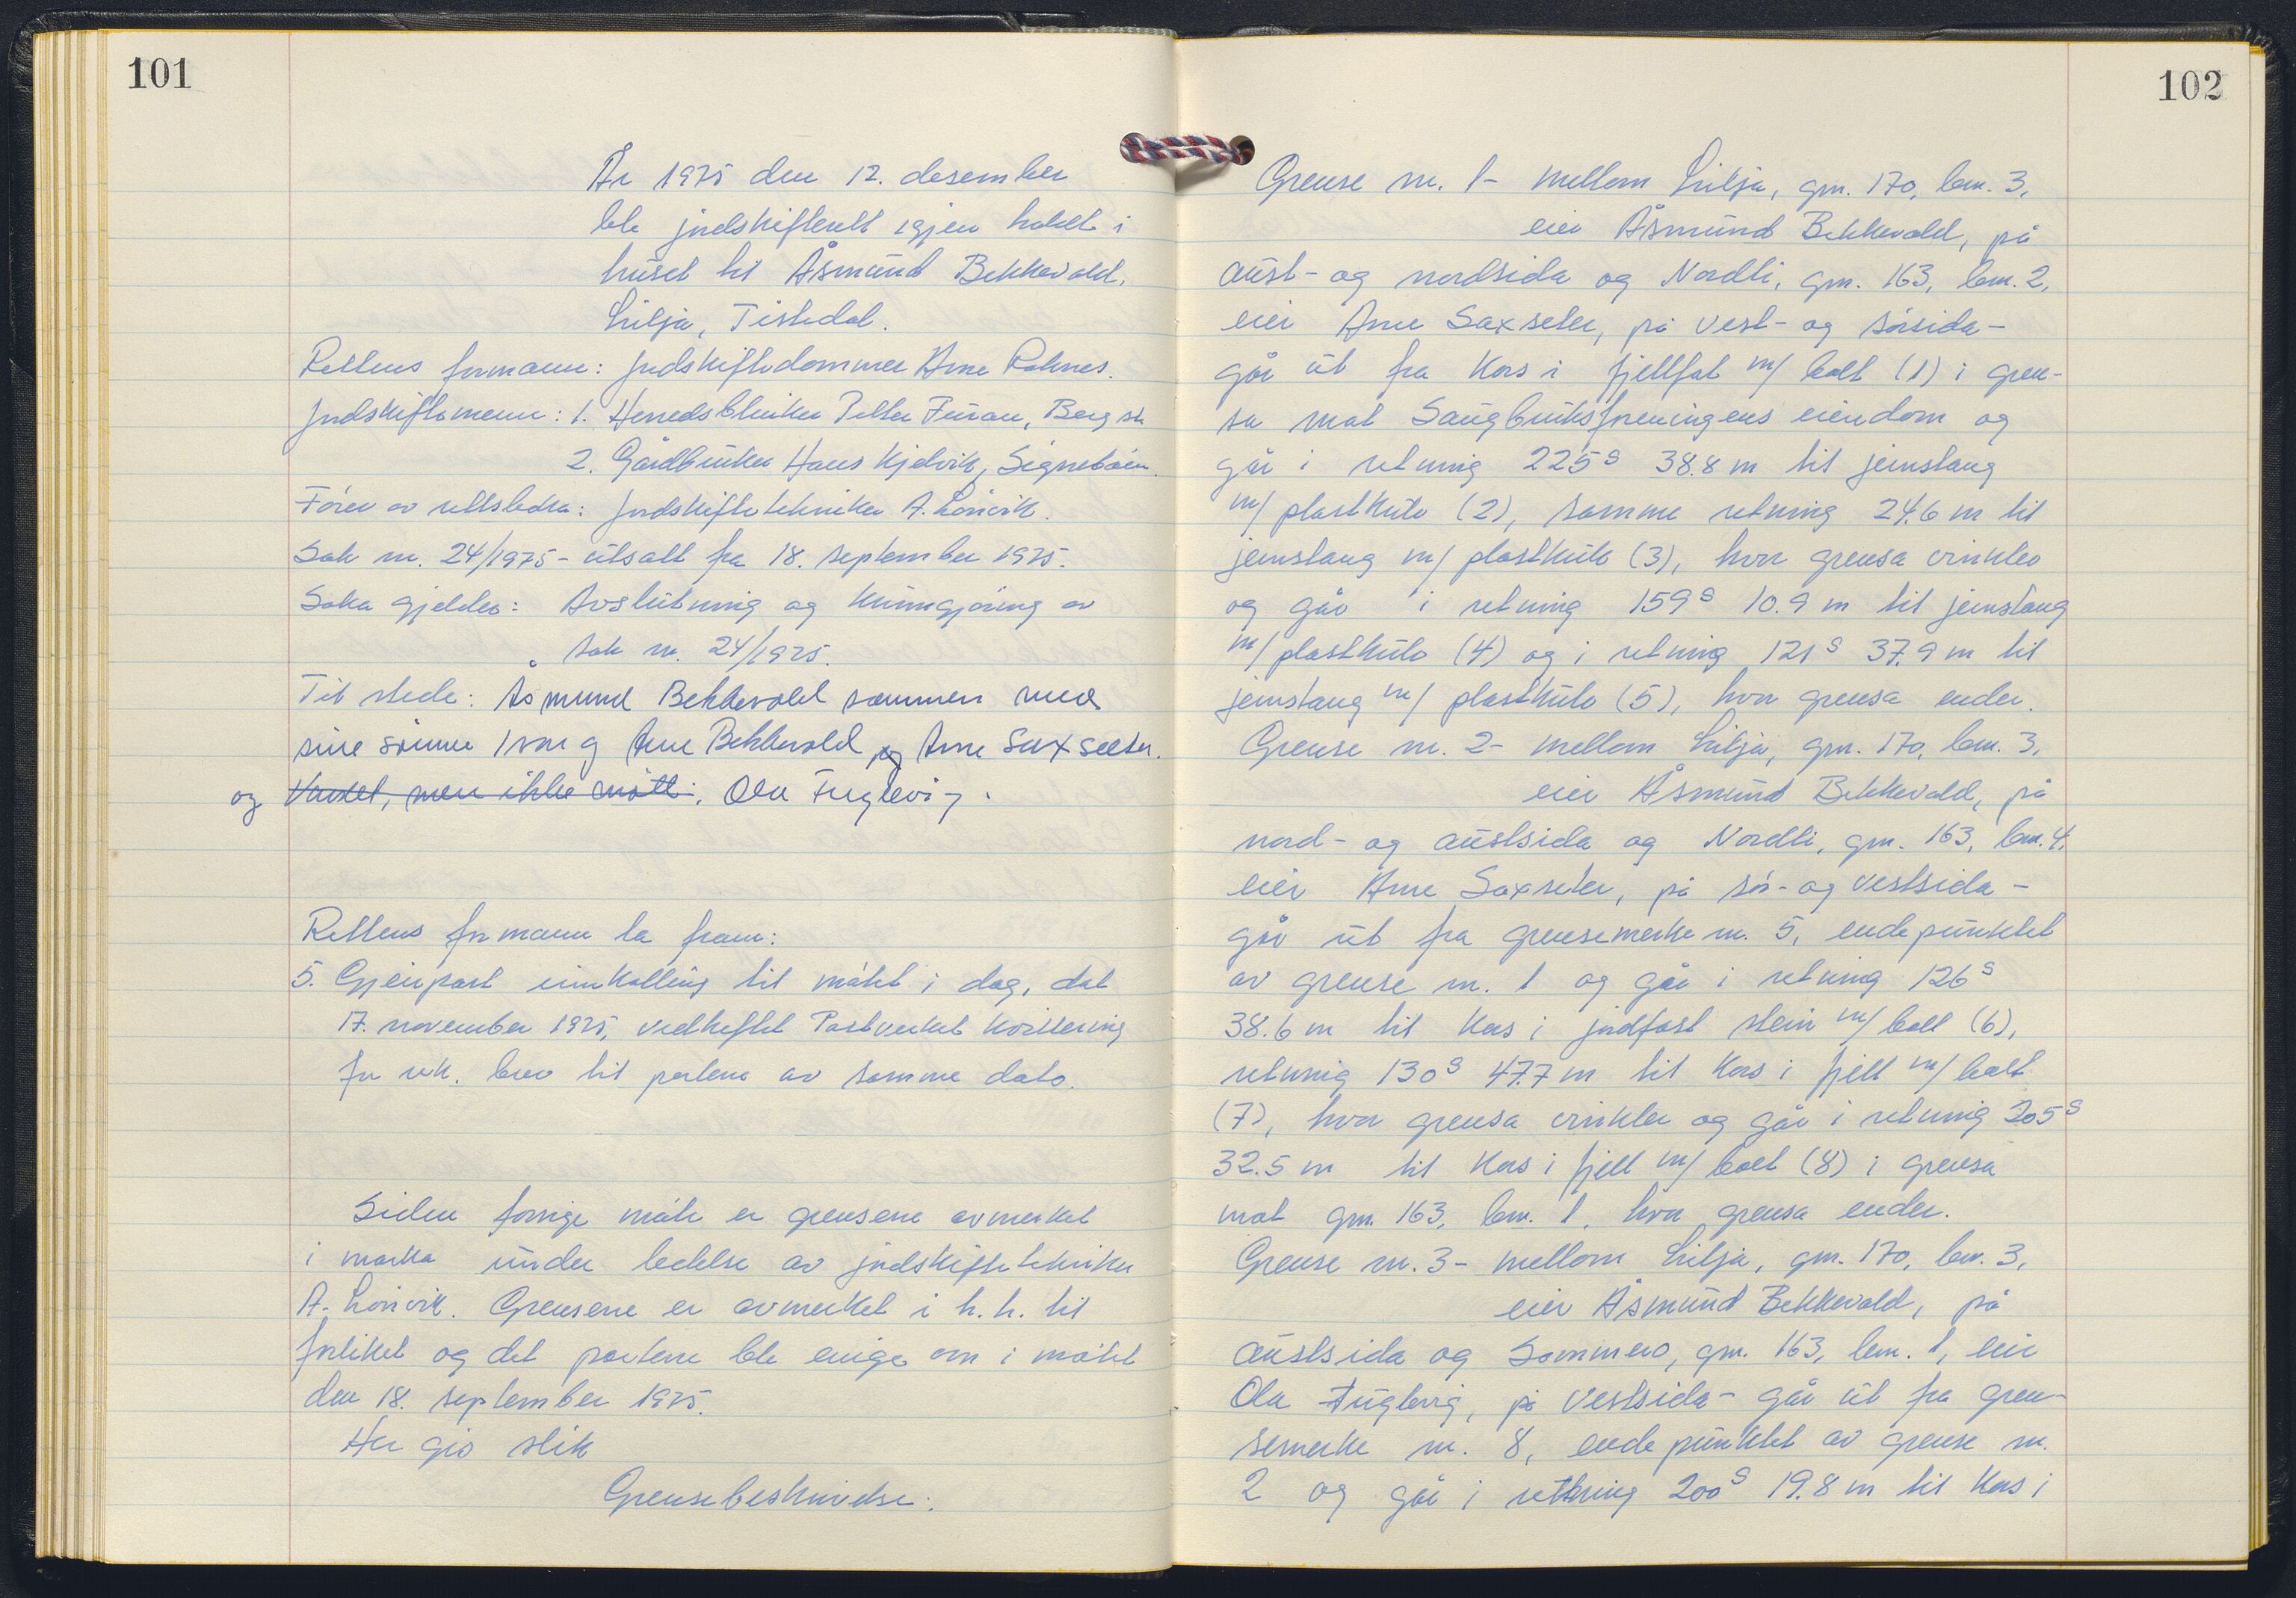 101
År 1975 den 12. desember
ble jordskifterett igjen holdt i
huset til Åsmund Bekkevold,
Lilja, Tistedal.
Rettens formann: Jordskiftedommer Arne Roknes.
Jordskiftemenn: 1. Herredsbkriker Petter Furau, Berg st.
2. Gårdbruker Hans Kjølvik, Signebøen.
Fører av rettsboka: Jordskiftetekniker A. Lönvik.
Sak nr. 24/1975 - utsatt fra 18. september 1975.
Saka gjelder: Avslutning og kunngjøring av
sak nr. 24/1975.
Til stede: Åsmund Bekkevold sammen med
sine sønner Ivar og Arne Bekkevold og Arne Saxseter.
og Varslet, men ikke møtt: Ola Fuglevig.
Rettens formann la fram:
5. Gjenpart innkalling til møtet i dag, dat
17. november 1975, vedheftet Postverket kvittering
for rek. brev til partene av samme dato.
Siden forrige møte er grensene avmerket
i marka under ledelse av jordskiftetekniker
A. Lönvik. Grensene er avmerket i h.h. til
forliket og det partene ble enige om i møtet
den 18. september 1975.
Her gis slik
Grensebeskrivelse:
102
Grense nr. 1 - mellom Lilja, gnr. 170, bnr. 3,
eier Åsmund Bekkevold, på
aust- og nordsida og Nordli, gnr. 163, bnr. 2,
eier Arne Saxseter, på vest- og sørsida -
går ut fra kors i fjellfat m/ bolt (1) i gren-
sa mot Saugbruksforeningens eiendom og
går i retning 225g 38.8 m til jernstang
m/ plastkule (2), samme retning 24.6 m til
jernstang m/ plastkule (3), hvor grensa vinkler
og går i retning 159g 10.9 m til jernstang
m/ plastkule (4) og i retning 121g 37.9 m til
jernstang m/ plastkule (5), hvor grensa ender.
Grense nr. 2 - mellom Lilja, gnr. 170, bnr. 3,
eier Åsmund Bekkevold, på
nord- og austsida og Nordli, gnr. 163, bnr. 4,
eier Arne Saxseter, på sør- og vestsida -
går ut fra grensemerke nr. 5, endepunktet
av grense nr. 1 og går i retning 126g
38.6 m til kors i jordfast stein m/ bolt (6),
retning 130g 47.7 m til kors i fjell m/ bolt
(7), hvor grensa vinkler og går i retning 205g
32.5 m til kors i fjell m/ bolt (8) i grensa
mot gnr. 163, bnr. 1, hvor grensa ender.
Grense nr. 3 - mellom Lilja, gnr. 170, bnr. 3,
eier Åsmund Bekkevold, på
austsida og Sommero, gnr. 163, bnr. 1, eier
Ola Fuglevig, på vestsida - går ut fra gren-
semerke nr. 8, endepunktet av grense nr.
2 og går i retning 200g 19.8 m til kors i